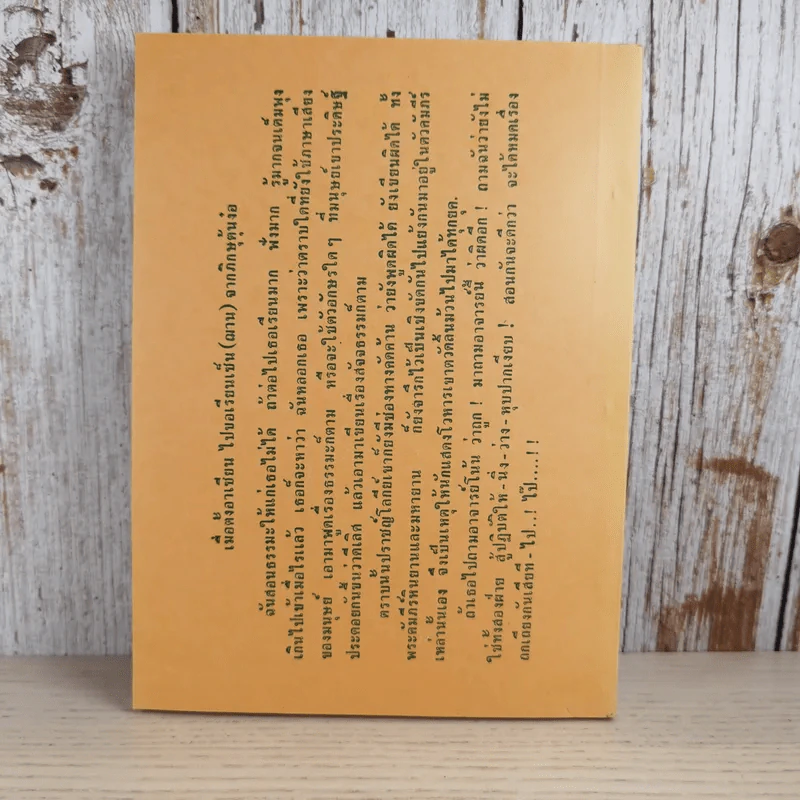 เมื่อตงอาเซียน ไปขอเรียนเซ็น (ฌาน) จากภิกษุตุ้นง้อ
ฉันสอนธรรมะให้แก่เธอไม่ได้ ถ้าต่อไปเธอเรียนมาก ฟังมาก รู้มากจนเต็มพุง
เกินไปเข้าเมื่อไรแล้ว เธอก็จะหาว่า ฉันหลอกเธอ เพราะว่าตราบใดที่ยังใช้ภาษาเสียง
ของมนุษย์ เอามาพูดเรื่องธรรมะก็ตาม หรือจะใช้ตัวอักษรใดๆ ที่มนุษย์เขาประดิษฐ์
ประดอยกันขึ้นว่าดีเลิศ แล้วเอามาเขียนเรื่องสัจจธรรมก็ตาม
ตราบนั้นปราชญ์โลกีย์เขาก็ยังมีช่องทางคัดค้าน ว่ายังพูดผิดได้ ยังเขียนผิดได้ ทั้ง
พระคัมภีร์หินยานและมหายาน ก็ยังจารึกไว้เป็นเชิงขัดกันไปแย้งกันมาอยู่ในตัวคัมภีร์
เหล่านั้นเอง จึงเป็นเหตุให้นักแสดงโวหารเขาตวัดลิ้นม้วนไปมาได้ทุกยุค.
ถ้าเธอไปถามอาจารย์โน้น ว่าถูก! มาถามอาจารย์นี้ ว่าผิดอีก! ถามฉันว่ายังไม่
ใช่ทั้งสองฝ่าย สู้ปฏิบัติให้-นิ่ง-ว่าง-หุบปากเงียบ! สอนกันจะดีกว่า จะได้หมดเรื่อง
ถกเถียงกันเสียที-ไป..! ไป๊....!!